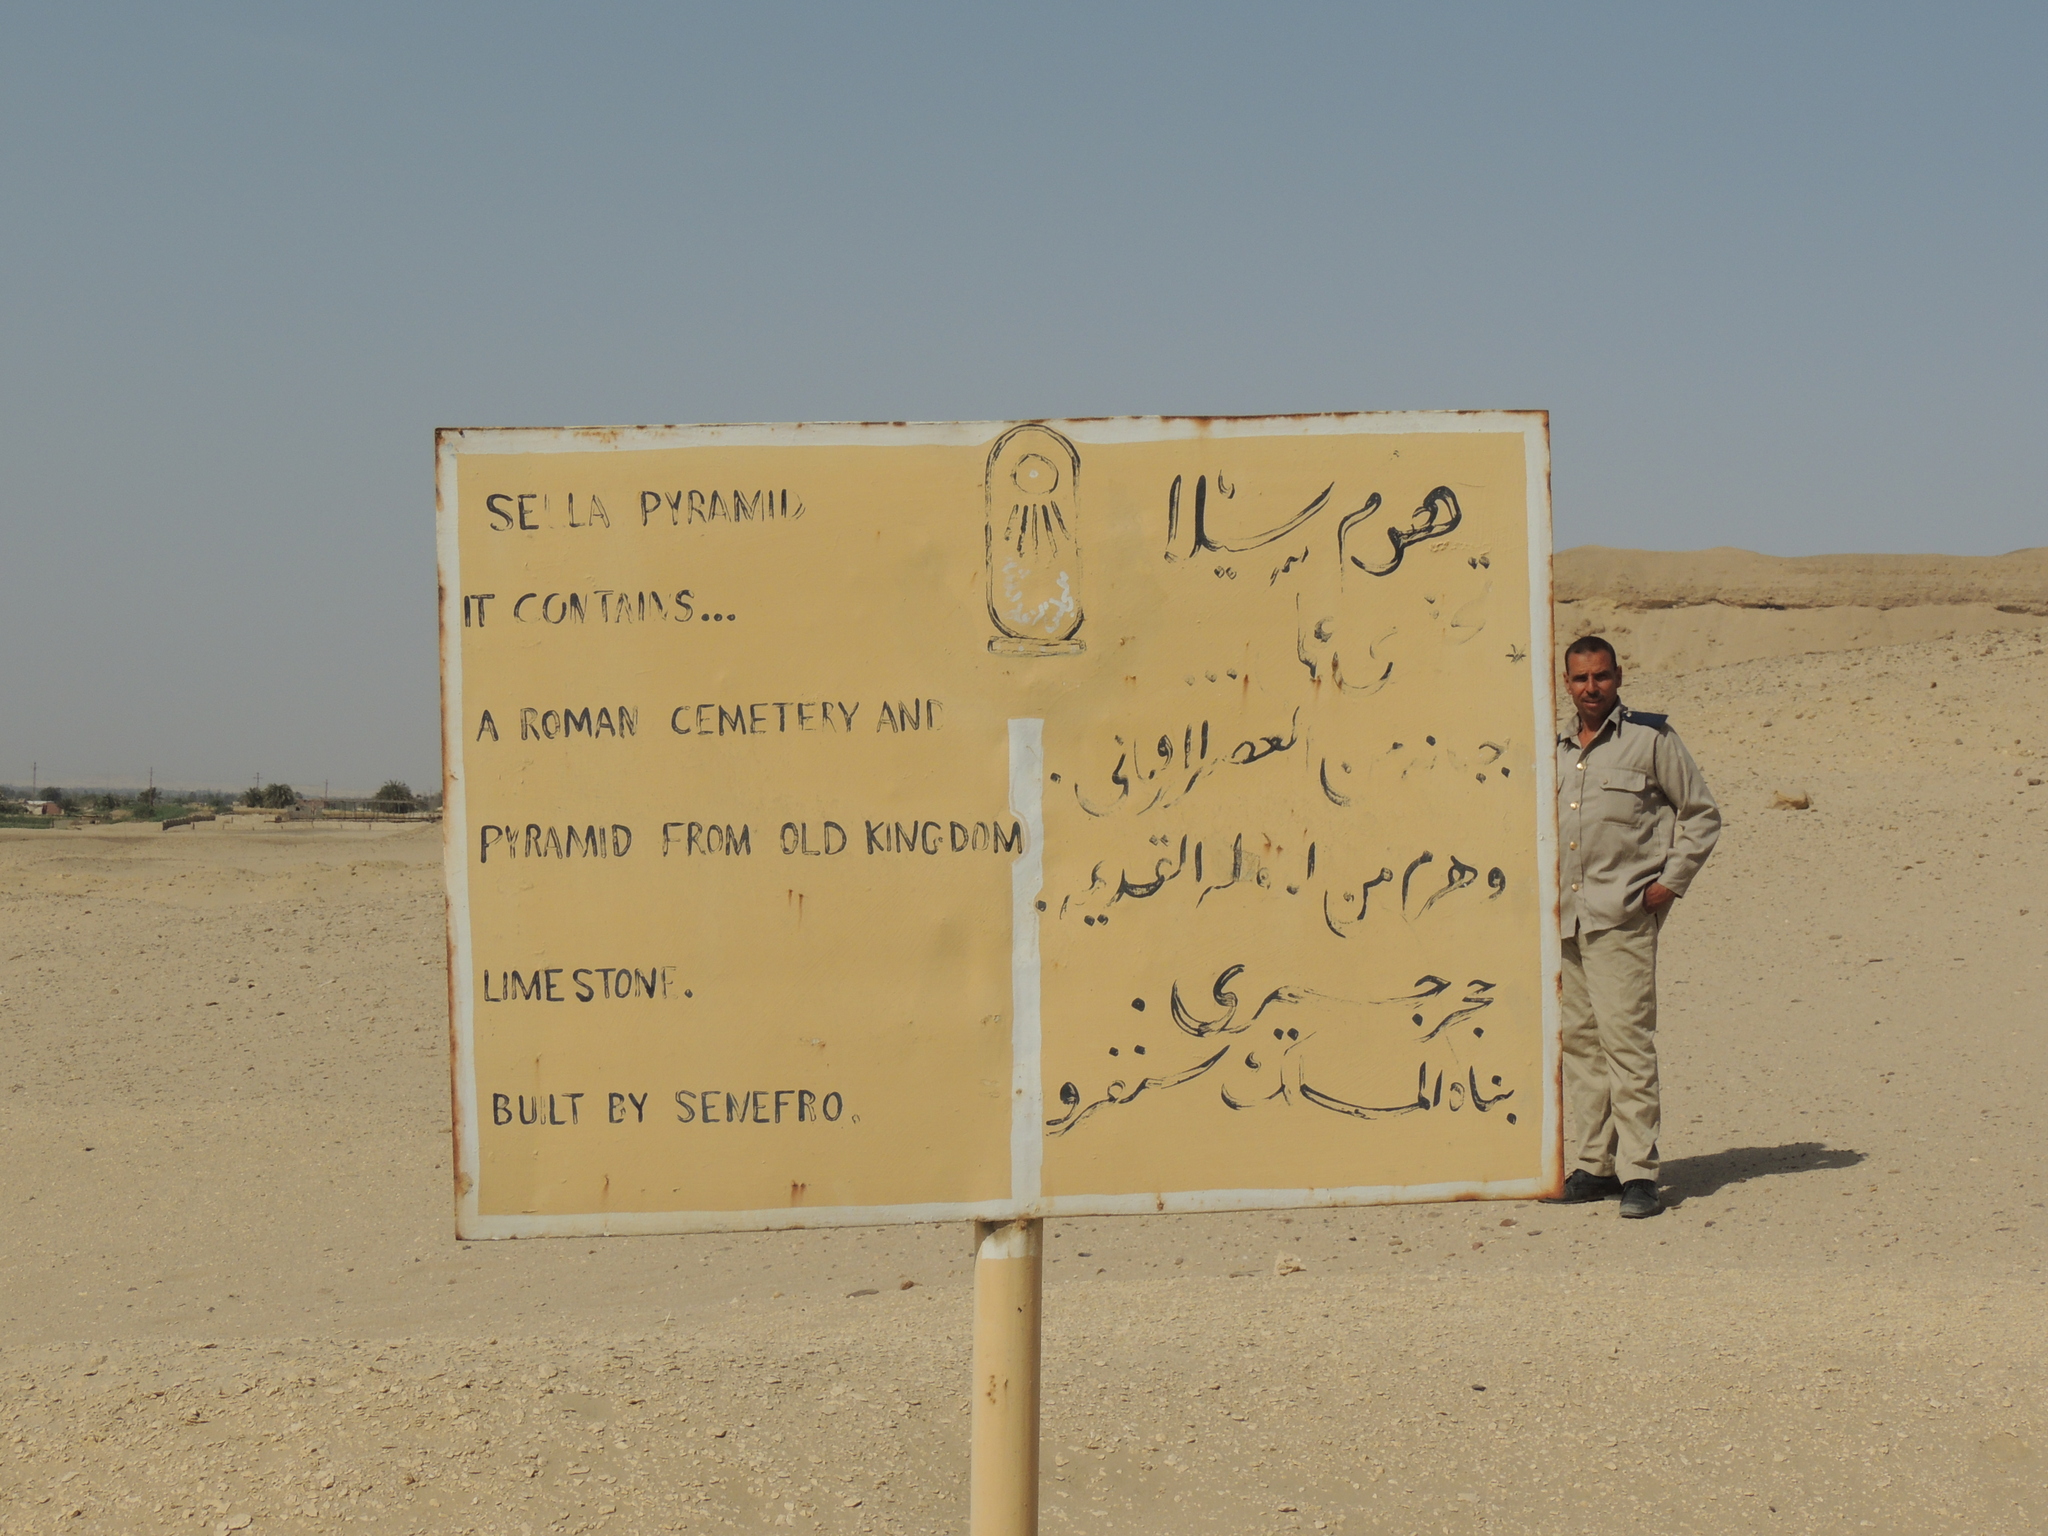 SELLA PYRAMID
IT CONTAINS...
A ROMAN CEMETERY AND
PYRAMID FROM OLD KINGDOM
LIMESTONE.
BUILT BY SENEFRO.
هرم سيلا
...
العصر الرومانى .
وهرم من القديمه .
حجر جيرى .
بناه الملك سنفرو